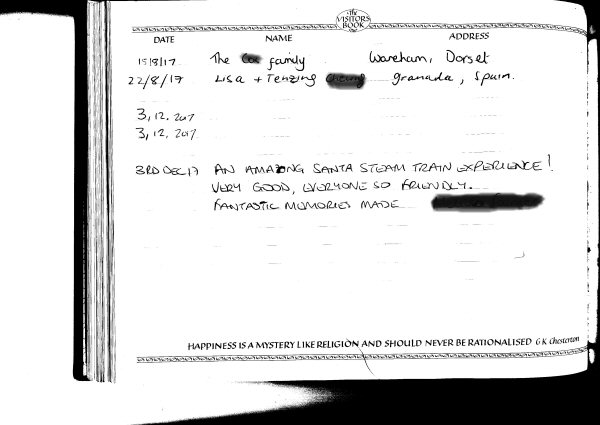 The VISITORS BOOK
DATE NAME ADDRESS
15/8/17 The family Wareham, Dorset
22/8/17 Lisa + Tenzing granada, Spain.
3, 12. 2017
3, 12, 2017
3RD DEC 17 AN AMAZING SANTA STEAM TRAIN EXPERIENCE!
VERY GOOD, EVERYONE SO FRIENDLY.
FANTASTIC MEMORIES MADE
HAPPINESS IS A MYSTERY LIKE RELIGION AND SHOULD NEVER BE RATIONALISED G K Chesterton